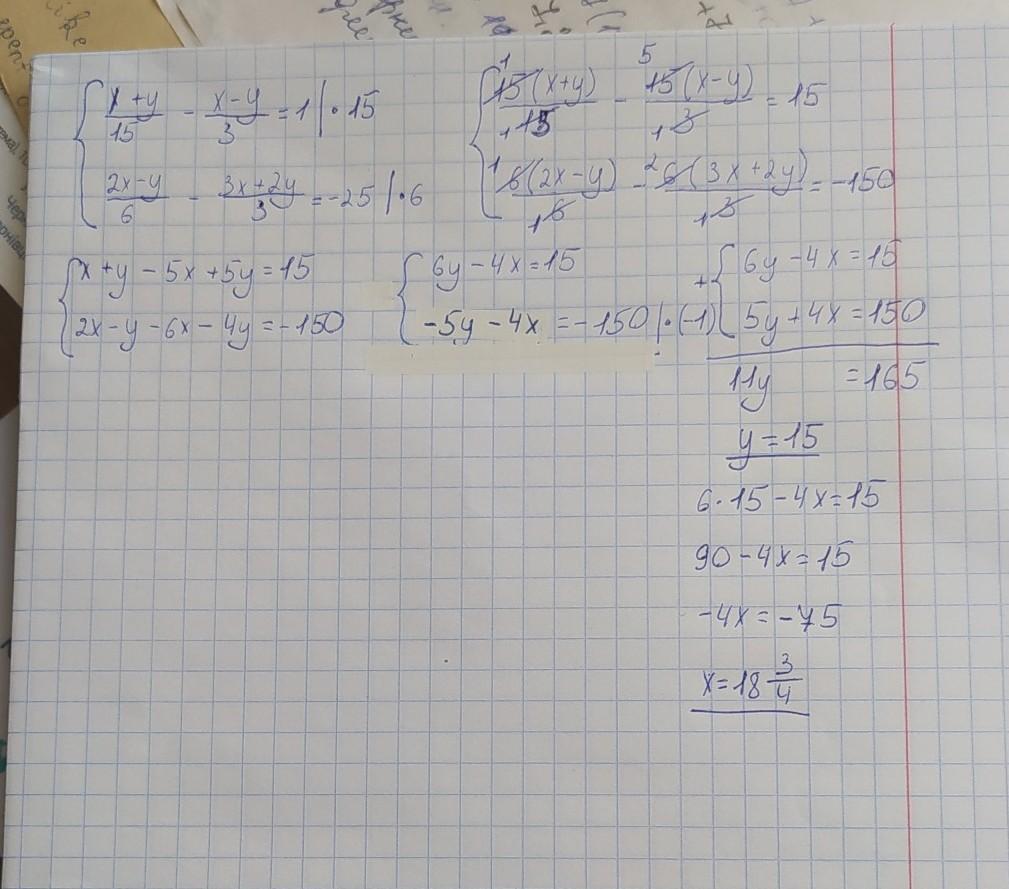 like
{ (x+y)/15 - (x-y)/3 = 1 | · 15
{ (2x-y)/6 - (3x+2y)/3 = -25 | · 6
{ 15(x+y)/15 - 15(x-y)/3 = 15
{ 6(2x-y)/6 - 6(3x+2y)/3 = -150
{ x + y - 5x + 5y = 15
{ 2x - y - 6x - 4y = -150
{ 6y - 4x = 15
{ -5y - 4x = -150 | · (-1)
+ { 6y - 4x = 15
{ 5y + 4x = 150
11y = 165
y = 15
6 · 15 - 4x = 15
90 - 4x = 15
-4x = -75
x = 18 3/4